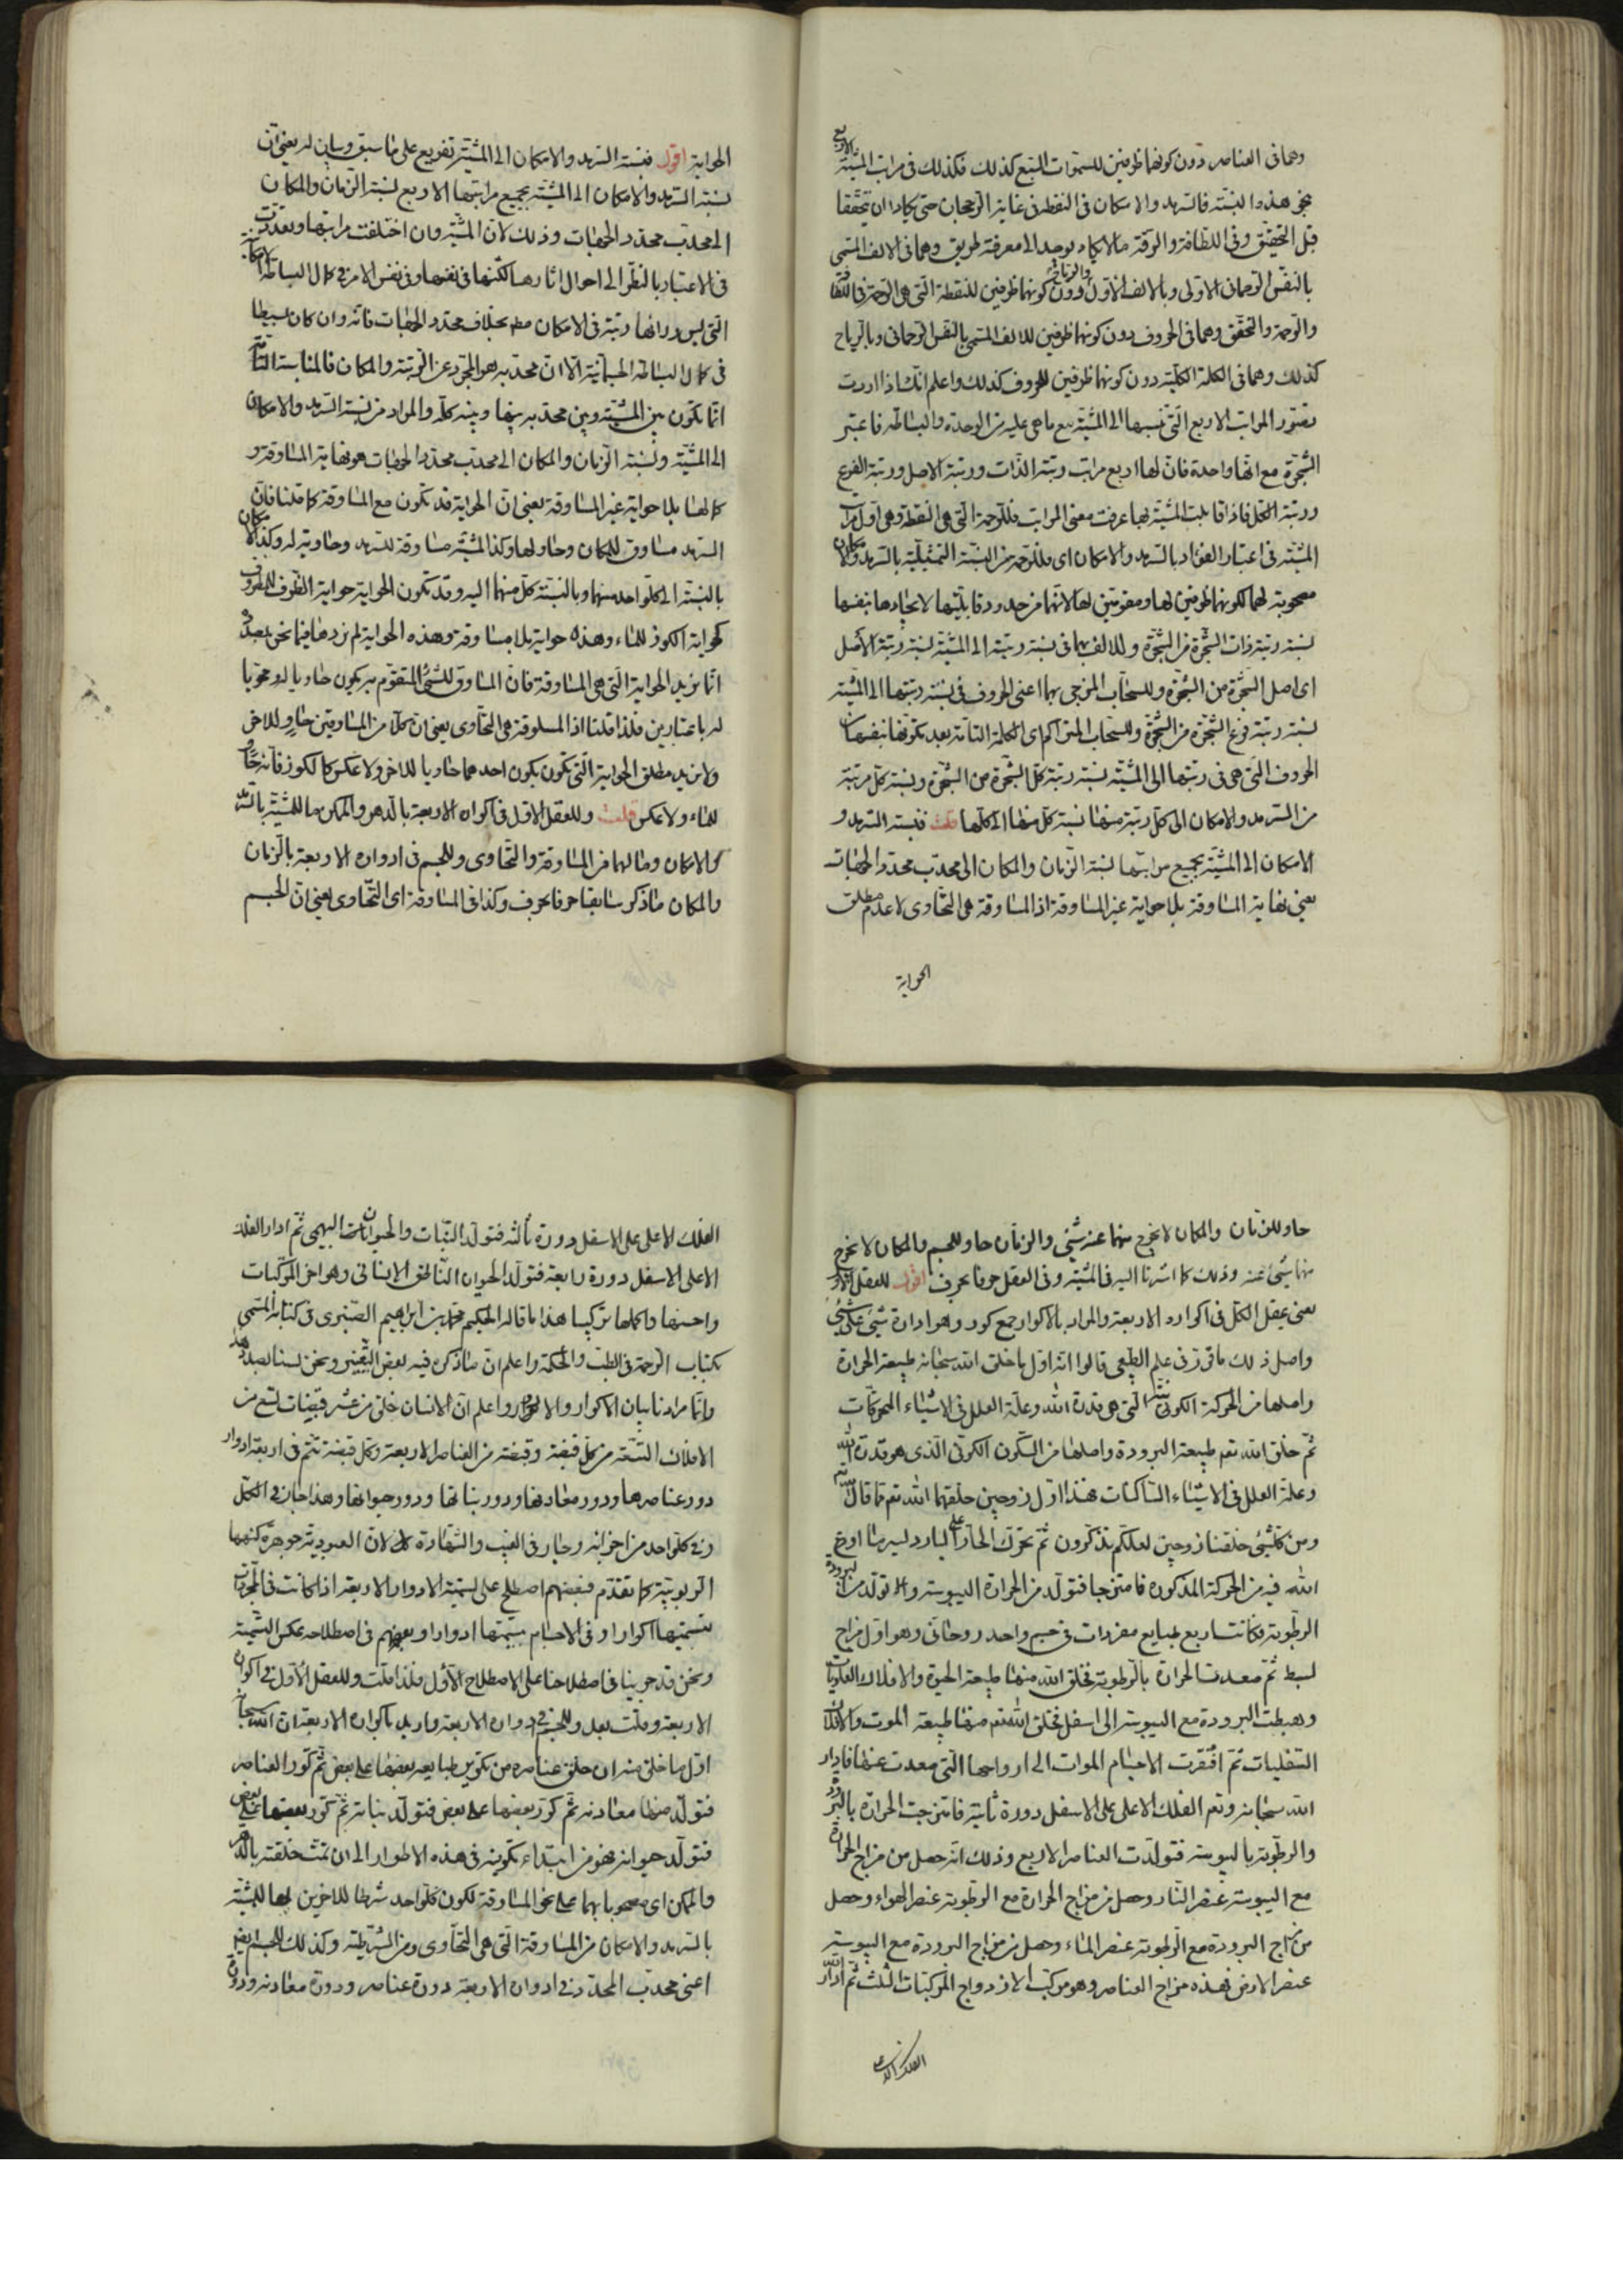 وهما فى العناصر دون كونهما ظرفين للسموات السبع كذلك فكذلك فى مراتب المشيّة الاربع
بنحو هذه النسبة فالسرمد والامكان فى النقطة فى غاية الرجحان حتى يكادا ان يتحققا
قبل التحقيق وفى اللطافة والرقة ما لا يكاد يوجد الى معرفة طريق وهما فى الالف المسمى
بالنفس الرحمانى الاولى وبالالف الاول والرياح دون كونهما ظرفين للنقطة التى هى الرحمة فى اللطافة
والرحمة والتحقق وهما فى الحروف دون كونهما ظرفين للالف المسمى بالنفس الرحمانى وبالرياح
كذلك وهما فى الكلمة الكلية دون كونهما ظرفين للحروف كذلك واعلم انك اذا اردت
تصور المراتب الاربع التى ننسبها الى المشية مع ما هى عليه من الوحدة والبساطة فاعتبر
الشجرة مع انها واحدة فان لها اربع مراتب رتبة الذات ورتبة الاصل ورتبة الفرع
ورتبة الكل فاذا قابلت المشية بها عرفت معنى المراتب فللرحمة التى هى النقطة وهى اول مراتب
المشية فى اعتبار الفؤاد بالسرمد والامكان اى فللرحمة من النسبة التمثيلية بالسرمد والامكان
مصحوبة لهما لكونهما ظرفين لها ومقومين لها لانهما من حدود قابليتها لايجادها بنفسها
نسبة رتبة ذات الشجرة من الشجرة وللالف بهما فى نسبة رتبته الى المشية نسبة رتبة الاصل
اى اصل الشجرة من الشجرة وللسحاب المزجى بهما اعنى الحروف فى نسبة رتبتها الى المشية
نسبة رتبة فرع الشجرة من الشجرة وللسحاب المتراكم اى الكلمة التامة بعد تكونها بنفسها من
الحروف التى هى فى رتبتها الى المشية نسبة رتبة كل الشجرة من الشجرة ونسبة كل مرتبة
من السرمد والامكان الى كل رتبة منها نسبة كل منهما الى كلها قلت فنسبة السرمد و
الامكان الى المشية بجميع مراتبها نسبة الزمان والمكان الى محدب محدد الجهات
يعنى نهاية المساوقة بلا حواية غير المساوقة اذ المساوقة هى التحاوى لا عدم مطلق
الحواية
الحواية اقول فنسبة السرمد والامكان الى المشية تفريع على ما سبق وبيان له يعنى ان
نسبة السرمد والامكان الى المشية بجميع مراتبها الاربع نسبة الزمان والمكان
الى محدب محدد الجهات وذلك لان المشية وان اختلفت مراتبها وتعددت
فى الاعتبار بالنظر الى احوال اثارها لكنها فى نفسها وفى نفس الامر فى كمال البساطة الامكانية
التى ليس وراءها رتبة فى الامكان مطلقا بخلاف محدد الجهات فانه وان كان بسيطا
فى كمال البساطة الجسمانية الا ان محدبه هو المجرد عن الرتبة والمكان فالمناسبة التامة
انما تكون بين المشية وبين محدبه بينها وبينه كله والمراد من نسبة السرمد والامكان
الى المشية ونسبة الزمان والمكان الى محدب محدد الجهات هو نهاية المساوقة و
كمالها بلا حواية غير المساوقة يعنى ان الحواية قد تكون مع المساوقة كما قلنا فان
السرمد مساوق للمكان وحاو لها وكذا المشية مساوقة للسرمد وحاوية له وكذا الامكان
بالنسبة الى كل واحد منهما وبالنسبة كل منهما اليه وقد تكون الحواية حواية الظرف للمظروف
كحواية الكوز للماء وهذه حواية بلا مساوقة وهذه الحواية لم نردها فيما نحن بصدده
انما نريد الحواية التى هى المساوقة فان المساوق للشئ المتقوم به يكون حاويا له ومحويا
له باعتبارين فلذا قلنا اذ المساوقة هى التحاوى يعنى ان كلا من المساوقين حاو للاخر
ولا نريد مطلق الحواية التى تكون يكون احدهما حاويا للاخر ولا عكس كالكوز فانه حاو
للماء ولا عكس قلت وللعقل الاول فى اكواره الاربعة بالدهر والممكن ما للمشية بالسرمد
والامكان وما لهما من المساوقة والتحاوى وللجسم فى ادواره الاربعة بالزمان
والمكان ما ذكر سابقا حرفا بحرف وكذا فى المساوقة اى التحاوى يعنى ان الجسم
حاو للزمان والمكان لا يخرج منهما عنه شئ والزمان حاو للجسم والمكان لا يخرج
منهما شئ عنه وذلك كما اشرنا اليه فى المشية وفى العقل حرفا بحرف اقول للعقل الاول
يعنى عقل الكل فى اكواره الاربعة والمراد بالاكوار جمع كور وهو ادارة شئ على شئ
واصل ذلك ما قرر فى علم الطبيعى قالوا انه اول ما خلق الله سبحانه طبيعة الحرارة
واصلها من الحركة الكونية التى هى قدرة الله وعلة العلل فى الاشياء المتحركات
ثم خلق الله تعم طبيعة البرودة واصلها من السكون الكونى الذى هو قدرة الله
وعلة العلل فى الاشياء الساكنات فهذا اول زوجين خلقهما الله تعم كما قال الله تعم
ومن كل شئ خلقنا زوجين لعلكم تذكرون ثم تحرك الحار على البارد لسر ما اودع
الله فيه من الحركة المذكورة فامتزجا فتولد من الحرارة اليبوسة وتولد من البرودة
الرطوبة فكانت اربع طبايع مفردات فى جسم واحد روحانى وهو اول مزاج
بسيط ثم صعدت الحرارة بالرطوبة فخلق الله منهما طبيعة الحيوة والافلاك العلويات
وهبطت البرودة مع اليبوسة الى اسفل فخلق الله تعم منهما طبيعة الموت والافلاك
السفليات ثم افتقرت الاجسام الموات الى ارواحها التى صعدت عنها فادار
الله سبحانه وتعم الفلك الاعلى على الاسفل دورة ثانية فامتزجت الحرارة بالبرودة
والرطوبة باليبوسة فتولدت العناصر الاربع وذلك انه حصل من مزاج الحرارة
مع اليبوسة عنصر النار وحصل من مزاج الحرارة مع الرطوبة عنصر الهواء وحصل
من مزاج البرودة مع الرطوبة عنصر الماء وحصل من مزاج البرودة مع اليبوسة
عنصر الارض فهذه مزاج العناصر وهو مركب الازدواج المركبات الثلث ثم ادار الله
الفلك الاعلى
الفلك الاعلى على الاسفل دورة ثالثة فتولد النبات والحيوانات البهيمى ثم ادار الفلك
الاعلى الاسفل دورة رابعة فتولد الحيوان الناطق الانسانى وهو اخر المركبات
واحسنها واكملها تركيبا هذا ما قاله الحكيم محمد بن ابراهيم الصنبرى فى كتابه المسمى
بكتاب الرحمة فى الطب والحكمة واعلم ان ما ذكره فيه بعض التغيير ونحن لسنا بصدد هذا
وانما مرادنا بيان الاكوار والادوار واعلم ان الانسان خلق من عشر قبضات تسع من
الافلاك التسعة من كل قبضة وقبضة من العناصر الاربعة وكل قبضة تتم فى اربعة ادوار
دور عناصرها ودور معادنها ودور نباتها ودور حيوانها وهذا جار فى الكل
وفى كل واحد من اجزائه وجار فى الغيب والشهادة لان العبودية جوهرة كنهها
الربوبية كما تقدم فبعضهم اصطلح على تسمية الادوار الاربعة اذا كانت فى المجردات
تسميتها اكوارا وفى الاجسام تسميتها ادوارا وبعضهم فى اصطلاحه عكس التسمية
ونحن قد جرينا فى اصطلاحنا على الاصطلاح الاول فلذا قلت وللعقل الاول فى اكواره
الاربعة وقلت بعد وللجسم فى ادواره الاربعة واريد باكواره الاربعة ان الله سبحانه
اول ما خلق منه ان خلق عناصره من تكوير طبايعه بعضها على بعض ثم كور العناصر
فتولد منها معادنه ثم كور بعضها على بعض فتولد نباته ثم كور بعضها على بعض
فتولد حيوانه فهو من ابتداء تكوينه فى هذه الاطوار الى ان تمت خلقته بالدهر
والممكن اى مصحوبا بهما على نحو المساوقة لكون كل واحد شرطا للاخرين لها للمشية
بالسرمد والامكان من المساوقة التى هى التحاوى ومن الشرطية وكذلك للجسم يعنى
اعنى محدب المحدد فى ادواره الاربعة دورة عناصره ودورة معادنه ودورة